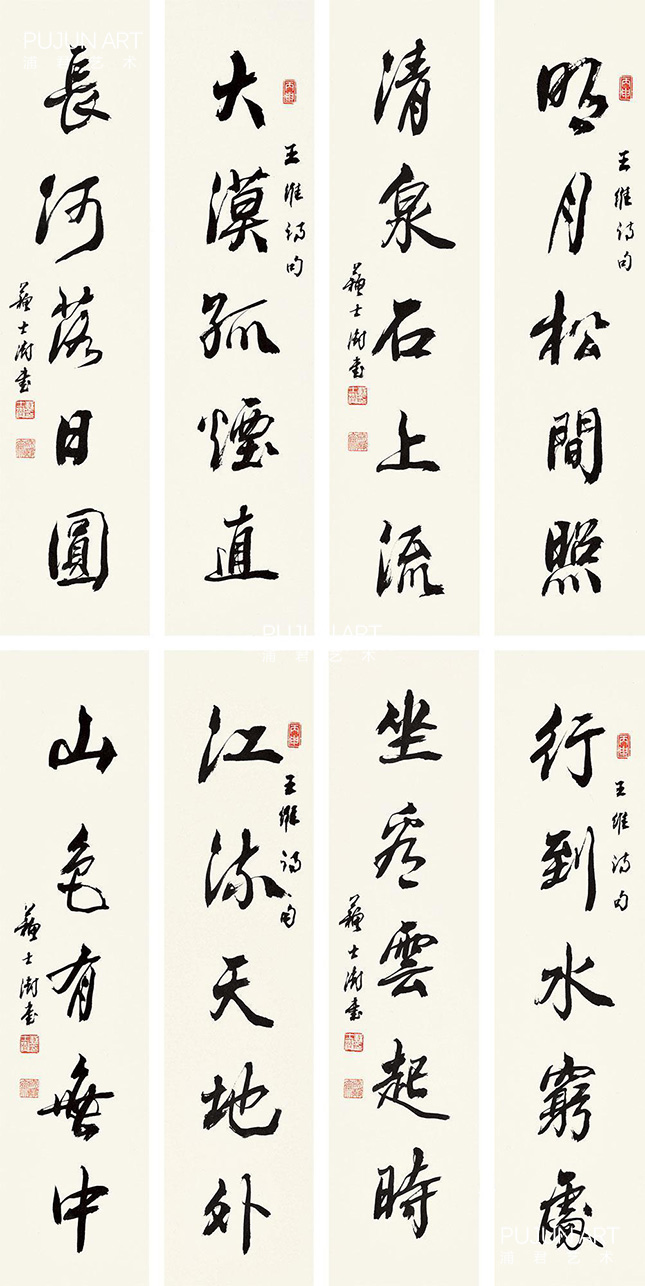 明月松間照
王維詩句
清泉石上流
蘇士澍書
大漠孤煙直
王維詩句
長河落日圓
蘇士澍書
行到水窮處
王維詩句
坐看雲起時
蘇士澍書
江流天地外
王維詩句
山色有無中
蘇士澍書
丙申
丙申
丙申
丙申
PUJUN ART
PUJUN ART
PUJUN ART